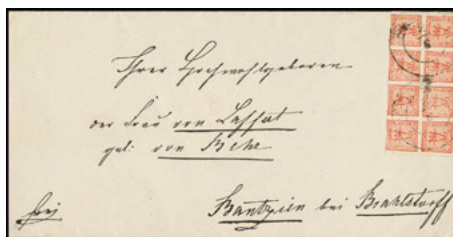 Ihrer Hochwohlgeboren
der Frau von Laffert
geb: von Behr
frei
Bantzien bei Brahlstorff